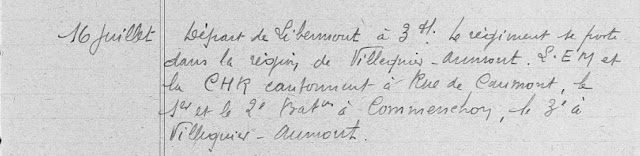 16 Juillet Départ de Libermont à 3 H. Le régiment se porte
dans la région de Villequier-Aumont. L'E M et
la CHR cantonnent à Rue de Caumont, le
1er et le 2e Batons à Commenchon, le 3e à
Villequier-Aumont.